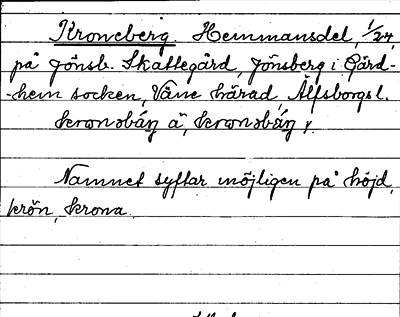 Kroneberg. Hemmansdel, 1/24,
på Jönsb. Skattegård, Jönsberg i Gärd-
-hem socken, Väne härad Älfsborgs l.
Namnet syftar möjligen på höjd,
krön, krona.